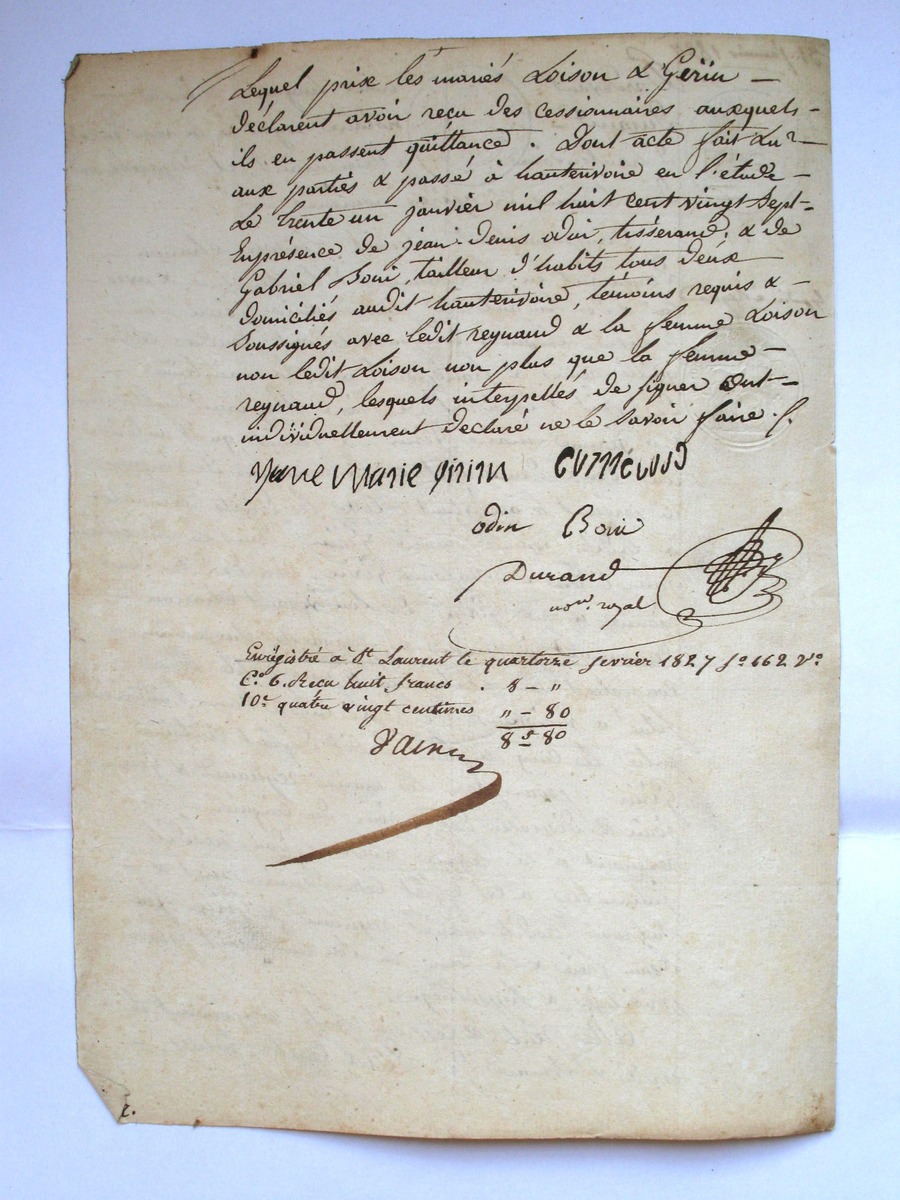 Lequel prix les mariés Loison & Gerin —
déclarent avoir reçu des cessionnaires auxquels —
ils en passent quittance. Dont acte fait Lu —
aux parties & passé à hauterivoire en l'étude —
Le trente un janvier mil huit cent vingt Sept —
En présence de jean-denis odin, tisserand, & de
Gabriel Boni, tailleur d'habits tous deux
domiciliés audit hauterivoire, témoins requis & —
Soussignés avec ledit reynaud & la femme Loison
non ledit Loison non plus que la femme —
reynaud, lesquels interpellés de signer ont —
individuellement déclaré ne le Savoir faire.
Marie
odin Boni
Durand
nore. royal
Enregistré à St Laurent le quatorze fevrier 1827 fo 162 Vo
Co 6. Reçu huit francs . 8 – "
10e quatre vingt centimes " – 80
8 f 80